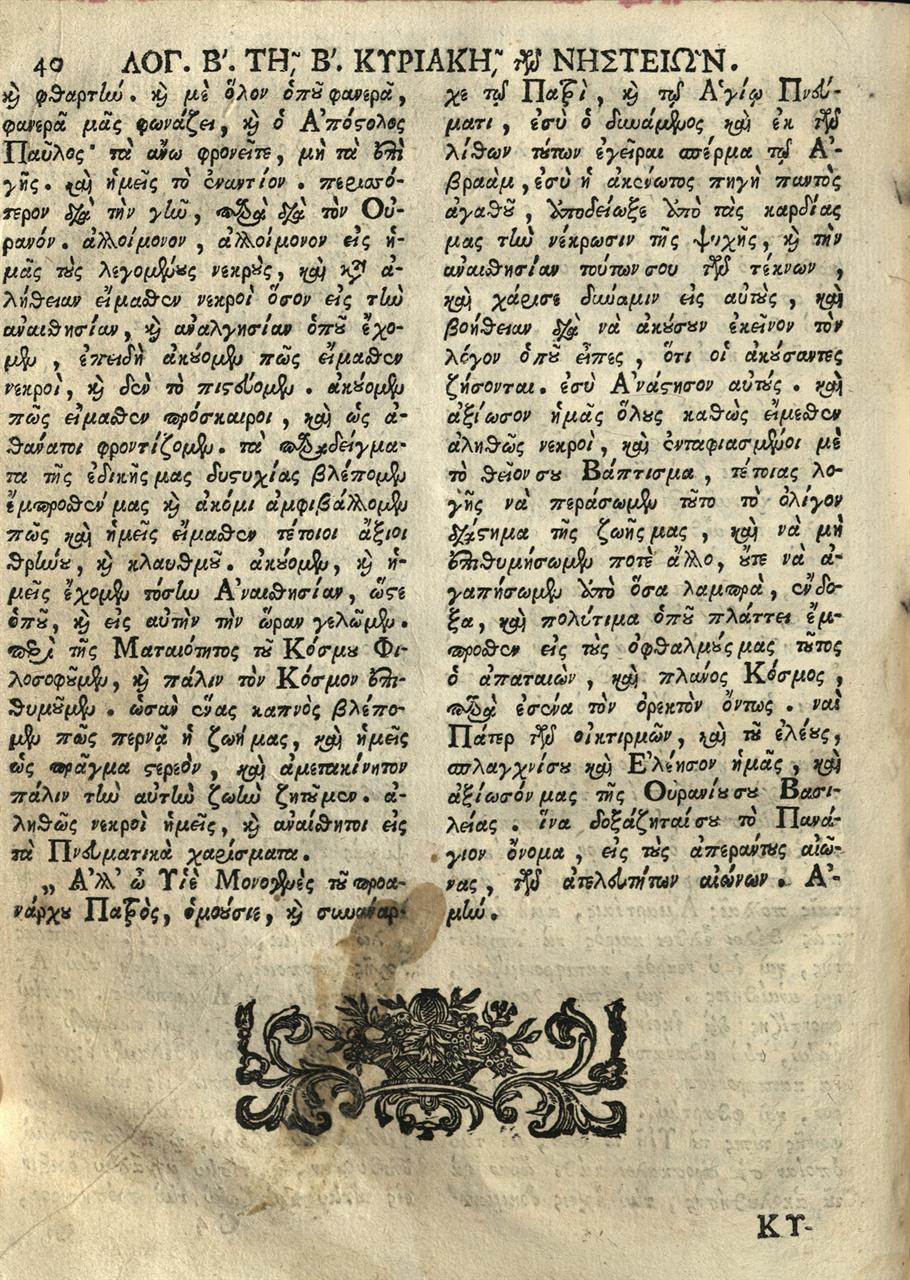 40 ΛΟΓ. Β΄. ΤΗ͂ Β΄. ΚΥΡΙΑΚΗ͂ τῶν ΝΗΣΤΕΙΩ͂Ν.
καὶ φθαρτὴν. καὶ μὲ ὅλον ὁποῦ φανερὰ,
φανερᾶ μᾶς φωνάζει, καὶ ὁ Ἀπόστολος
Παῦλος· τὰ ἄνω φρονεῖτε, μὴ τὰ ἐπὶ
γῆς. καὶ ἡμεῖς τὸ ἐναντίον. περισσό-
τερον διὰ τὴν γῆν, παρὰ διὰ τὸν Οὐ-
ρανόν. ἀλλοίμονον, ἀλλοίμονον εἰς ἡ-
μᾶς τοὺς λεγομένους νεκροὺς, καὶ κατὰ ἀ-
λήθειαν εἴμασθεν νεκροὶ ὅσον εἰς τὴν
ἀναισθησίαν, καὶ ἀναλγησίαν ὁποῦ ἔχο-
μεν, ἐπειδὴ ἀκούομεν πῶς εἴμασθεν
νεκροὶ, καὶ δὲν τὸ πιστεύομεν. ἀκούομεν
πῶς εἴμασθεν πρόσκαιροι, καὶ ὡς ἀ-
θάνατοι φροντίζομεν. τὰ παραδείγμα-
τα τῆς ἐδικῆς μας δυστυχίας βλέπομεν
ἔμπροσθέν μας καὶ ἀκόμι ἀμφιβάλλομεν
πῶς καὶ ἡμεῖς εἴμασθεν τέτοιοι ἄξιοι
θρήνου, καὶ κλαυθμοῦ. ἀκούομεν, καὶ ἡ-
μεῖς ἔχομεν τόσην Ἀναισθησίαν, ὥστε
ὁποῦ, καὶ εἰς αὐτὴν τὴν ὥραν γελῶμεν.
περὶ τῆς Ματαιότητος τοῦ Κόσμου Φι-
λοσοφοῦμεν, καὶ πάλιν τὸν Κόσμον ἐπι-
θυμοῦμεν. ὡσὰν ἕνας καπνὸς βλέπο-
μεν πῶς περνᾷ ἡ ζωή μας, καὶ ἡμεῖς
ὡς πρᾶγμα στερεὸν, καὶ ἀμετακίνητον
πάλιν τὴν αὐτὴν ζωὴν ζητοῦμεν. ἀ-
ληθῶς νεκροὶ ἡμεῖς, καὶ ἀναίσθητοι εἰς
τὰ Πνευματικὰ χαρίσματα.
„ Ἀλλ' ὦ Υἱὲ Μονογενὲς τοῦ προα-
νάρχου Πατρὸς, ὁμούσιε, καὶ συνάναρ-
χε τῷ Πατρὶ, καὶ τῷ Ἁγίῳ Πνεύ-
ματι, ἐσὺ ὁ δυνάμενος καὶ ἐκ τῶν
λίθων τούτων ἐγεῖραι σπέρμα τῷ Ἀ-
βραὰμ, ἐσὺ ἡ ἀκένωτος πηγὴ παντὸς
ἀγαθοῦ, ἀποδείωξε ἀπὸ τὰς καρδίας
μας τὴν νέκρωσιν τῆς ψυχῆς, καὶ τὴν
ἀναισθησίαν τούτων σου τῶν τέκνων,
καὶ χάρισε δύναμιν εἰς αὐτοὺς, καὶ
βοήθειαν διὰ νὰ ἀκούσουν ἐκεῖνον τὸν
λόγον ὁποῦ εἶπες, ὅτι οἱ ἀκούσαντες
ζήσονται. ἐσὺ Ἀνάστησον αὐτούς. καὶ
ἀξίωσον ἡμᾶς ὅλους καθὼς εἴμεθεν
ἀληθῶς νεκροὶ, καὶ ἐνταφιασμένοι μὲ
τὸ θεῖον σου Βάπτισμα, τέτοιας λο-
γῆς νὰ περάσωμεν τοῦτο τὸ ὀλίγον
διάστημα τῆς ζωῆς μας, καὶ νὰ μὴ
ἐπιθυμήσωμεν ποτὲ ἄλλο, οὔτε νὰ ἀ-
γαπήσωμεν ἀπὸ ὅσα λαμπρὰ, ἔνδο-
ξα, καὶ πολύτιμα ὁποῦ πλάττει ἔμ-
προσθεν εἰς τοὺς ὀφθαλμούς μας τοῦτος
ὁ ἀπαταιὼν, καὶ πλάνος Κόσμος,
παρὰ ἐσένα τὸν ὀρεκτὸν ὄντως. ναὶ
Πάτερ τῶν οἰκτιρμῶν, καὶ τοῦ ἐλέους,
σπλαγχνίσου καὶ Ἐλέησον ἡμᾶς, καὶ
ἀξίωσόν μας τῆς Οὐρανίου σου Βασι-
λείας. ἵνα δοξάζηταί σου τὸ Πανά-
γιον ὄνομα, εἰς τοὺς ἀπεράντους αἰῶ-
νας, τῶν ἀτελευτήτων αἰώνων. Ἀ-
μήν.
ΚΥ-